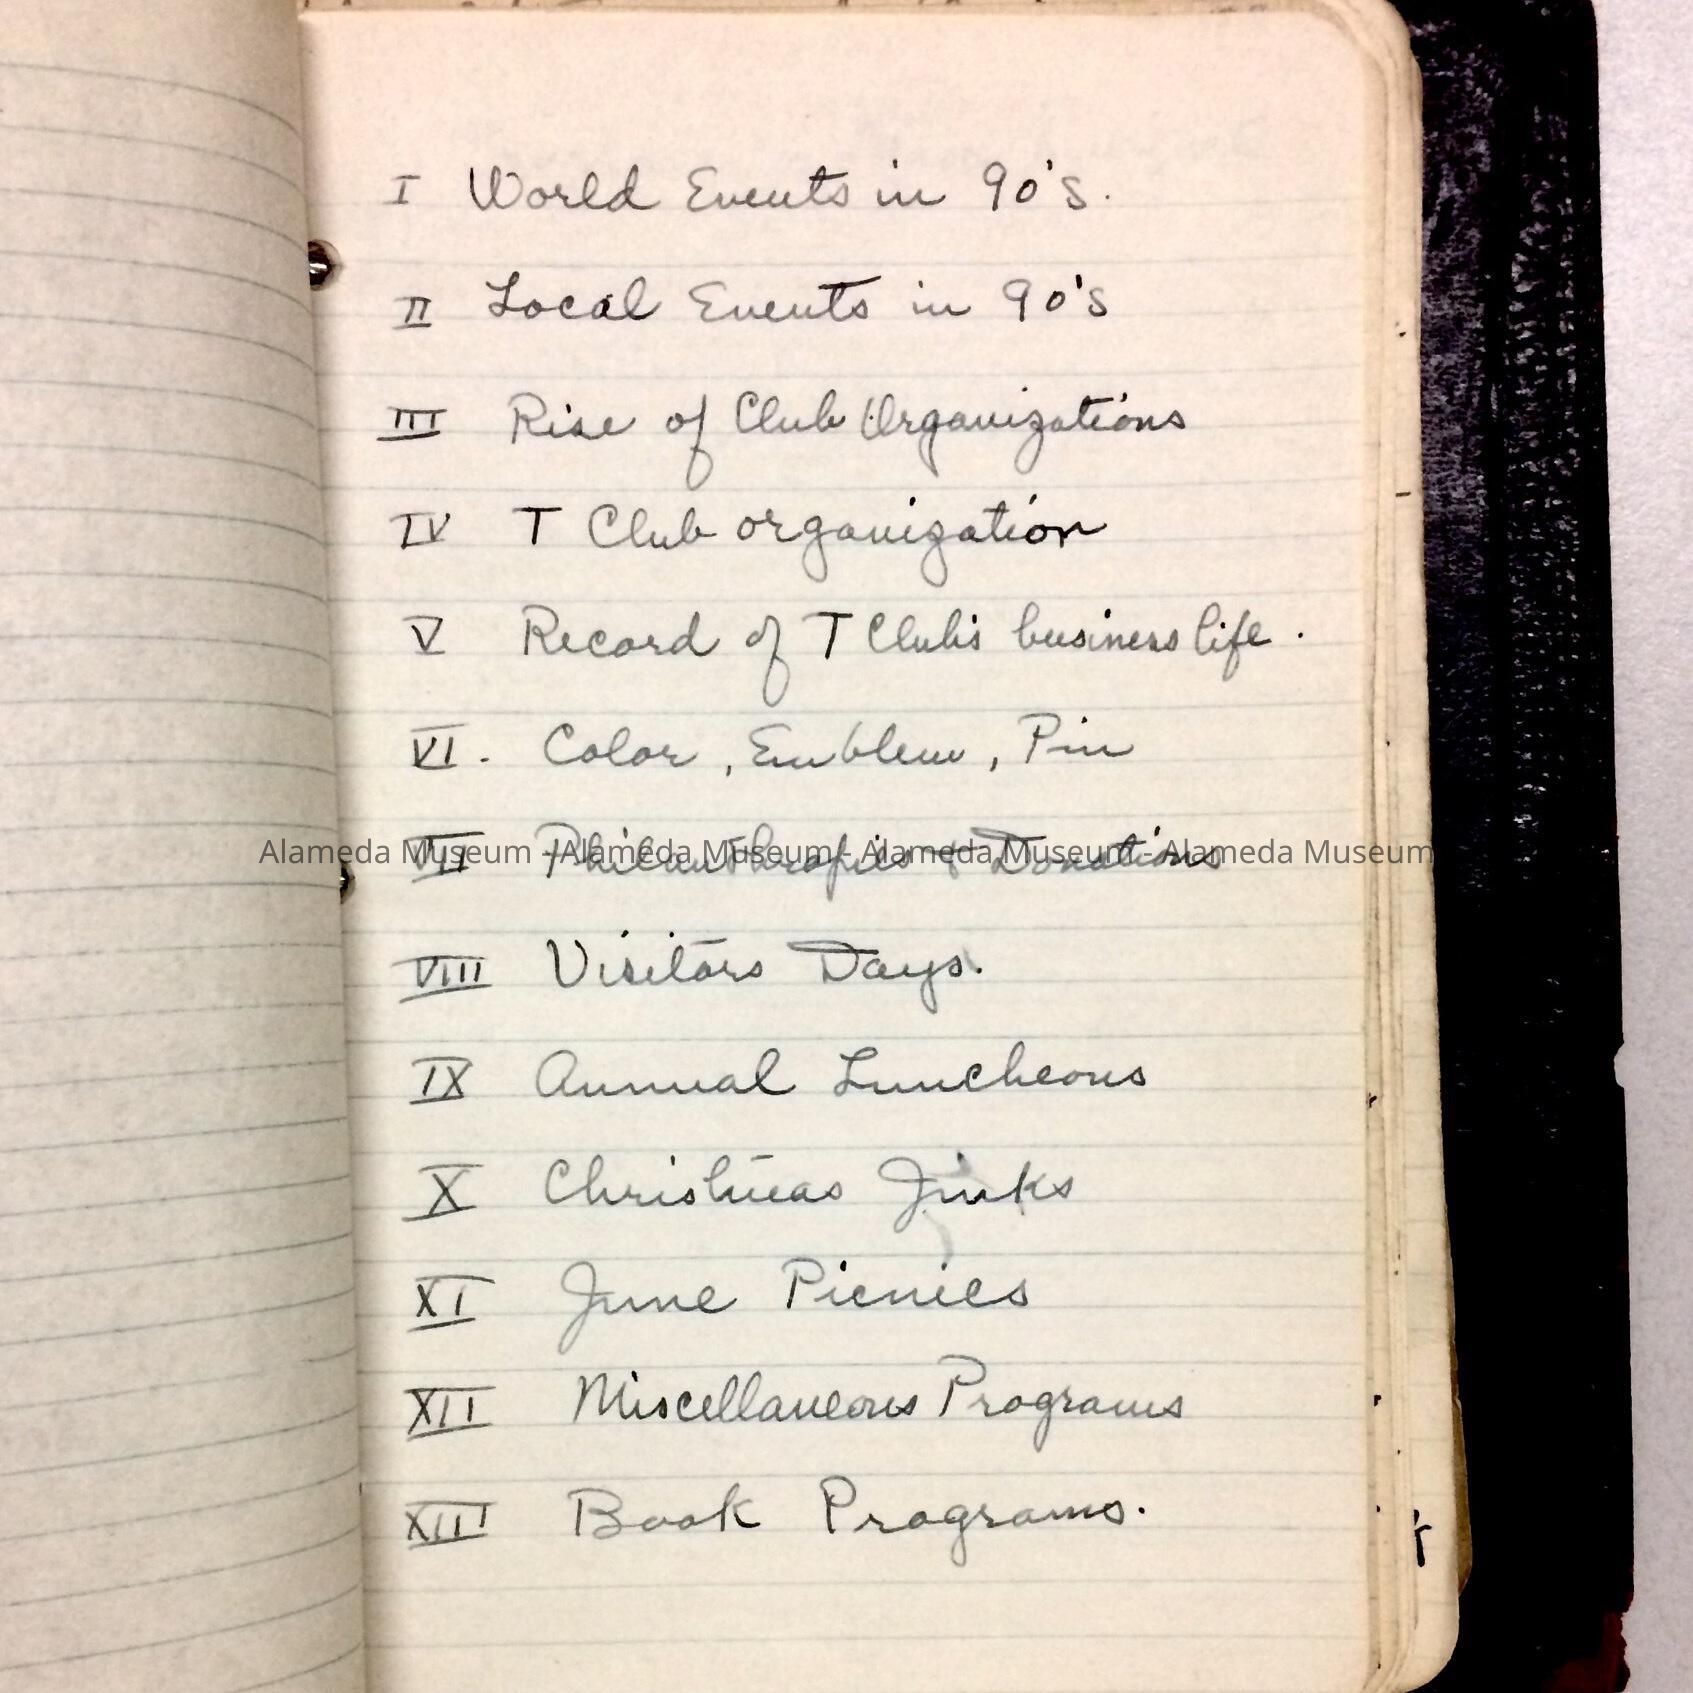 I World Events in 90's.
II Local Events in 90's
III Rise of Club Organizations
IV T Club organization
V Record of T Club's business life.
VI. Color, Emblem, Pin
VII Philanthropies & Donations
Alameda Museum - Alameda Museum - Alameda Museum - Alameda Museum
VIII Visitors Days.
IX Annual Luncheons
X Christmas Jinks
XI June Picnics
XII Miscellaneous Programs
XIII Book Programs.